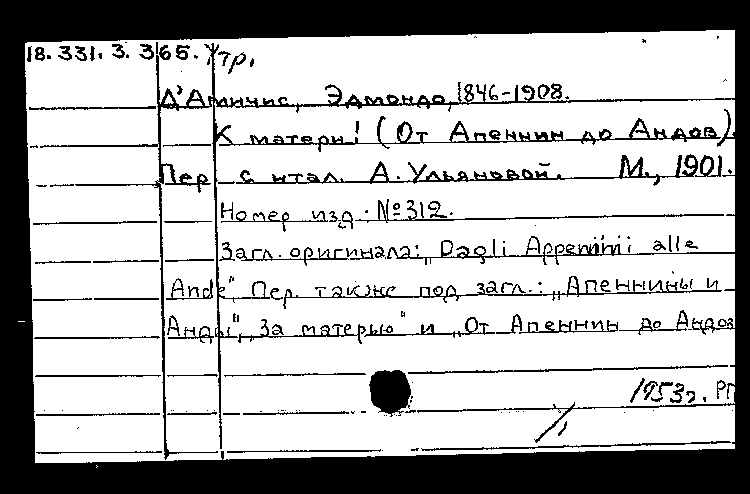 18.331.3.365. Утр.
Д'Амичис, Эдмондо, 1846-1908.
К матери! (От Апеннин до Андов).
Пер. с итал. А. Ульяновой. М., 1901.
Номер изд.: №312.
Загл. оригинала: „Dagli Appennini alle
Ande“, Пер. также под загл.: „Апеннины и
Анды“, „За матерью“ и „От Апеннин до Андов
1953г. РП